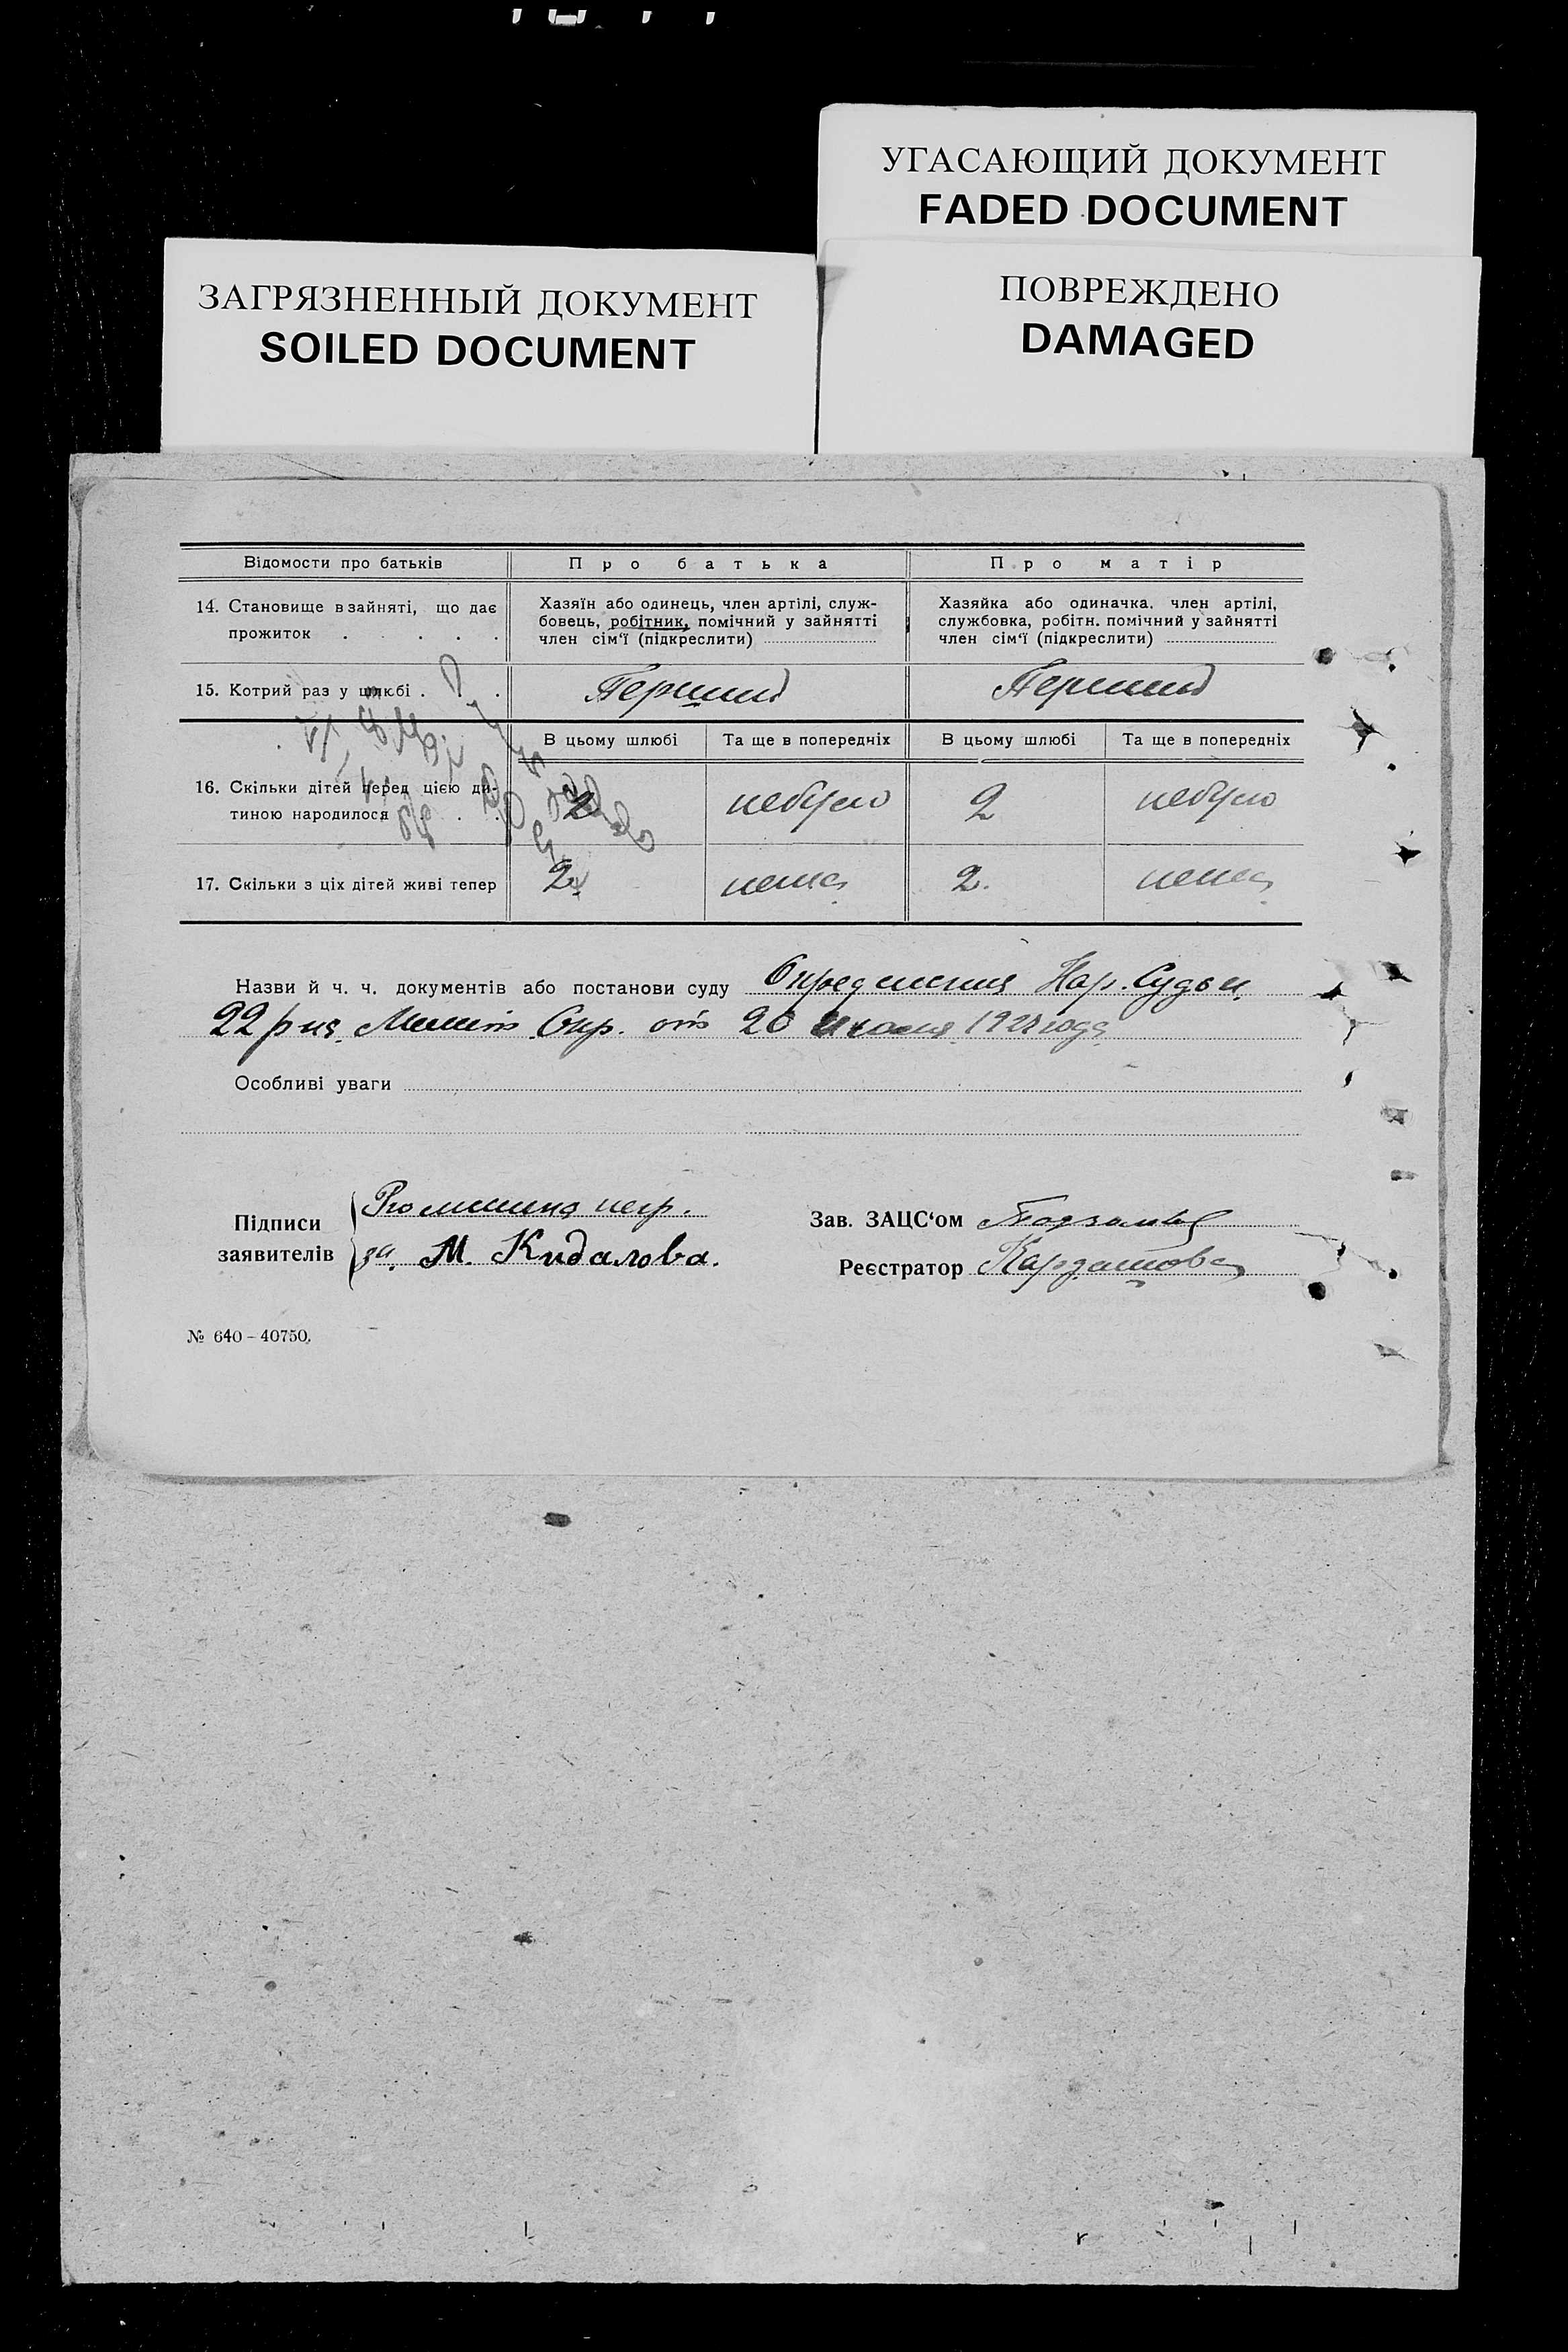 УГАСАЮЩИЙ ДОКУМЕНТ
FADED DOCUMENT
ЗАГРЯЗНЕННЫЙ ДОКУМЕНТ
SOILED DOCUMENT
ПОВРЕЖДЕНО
DAMAGED
Відомости про батьків
Про батька
Про матір
14. Становище в зайняті, що дає
прожиток . . . .
Хазяїн або одинець, член артілі, служ-
бовець, робітник, помічний у зайнятті
член сім‘ї (підкреслити)
Хазяйка або одиначка. член артілі,
службовка, робітн. помічний у зайнятті
член сім‘ї (підкреслити)
15. Котрий раз у шлюбі . . .
Перший
Перший
В цьому шлюбі
Та ще в попередніх
В цьому шлюбі
Та ще в попередніх
16. Скільки дітей перед цією ди-
тиною народилося . .
2
небуло
2
небуло
17. Скільки з ціх дітей живі тепер
2
нема
2.
нема
Назви й ч. ч. документів або постанови суду Определения Нар. Судьи
22 р на Окр. от 20 1928 года
Особливі уваги
Підписи
заявителів
негр.
за М. Кидалова.
Зав. ЗАЦС‘ом
Реєстратор
№ 640 – 40750.